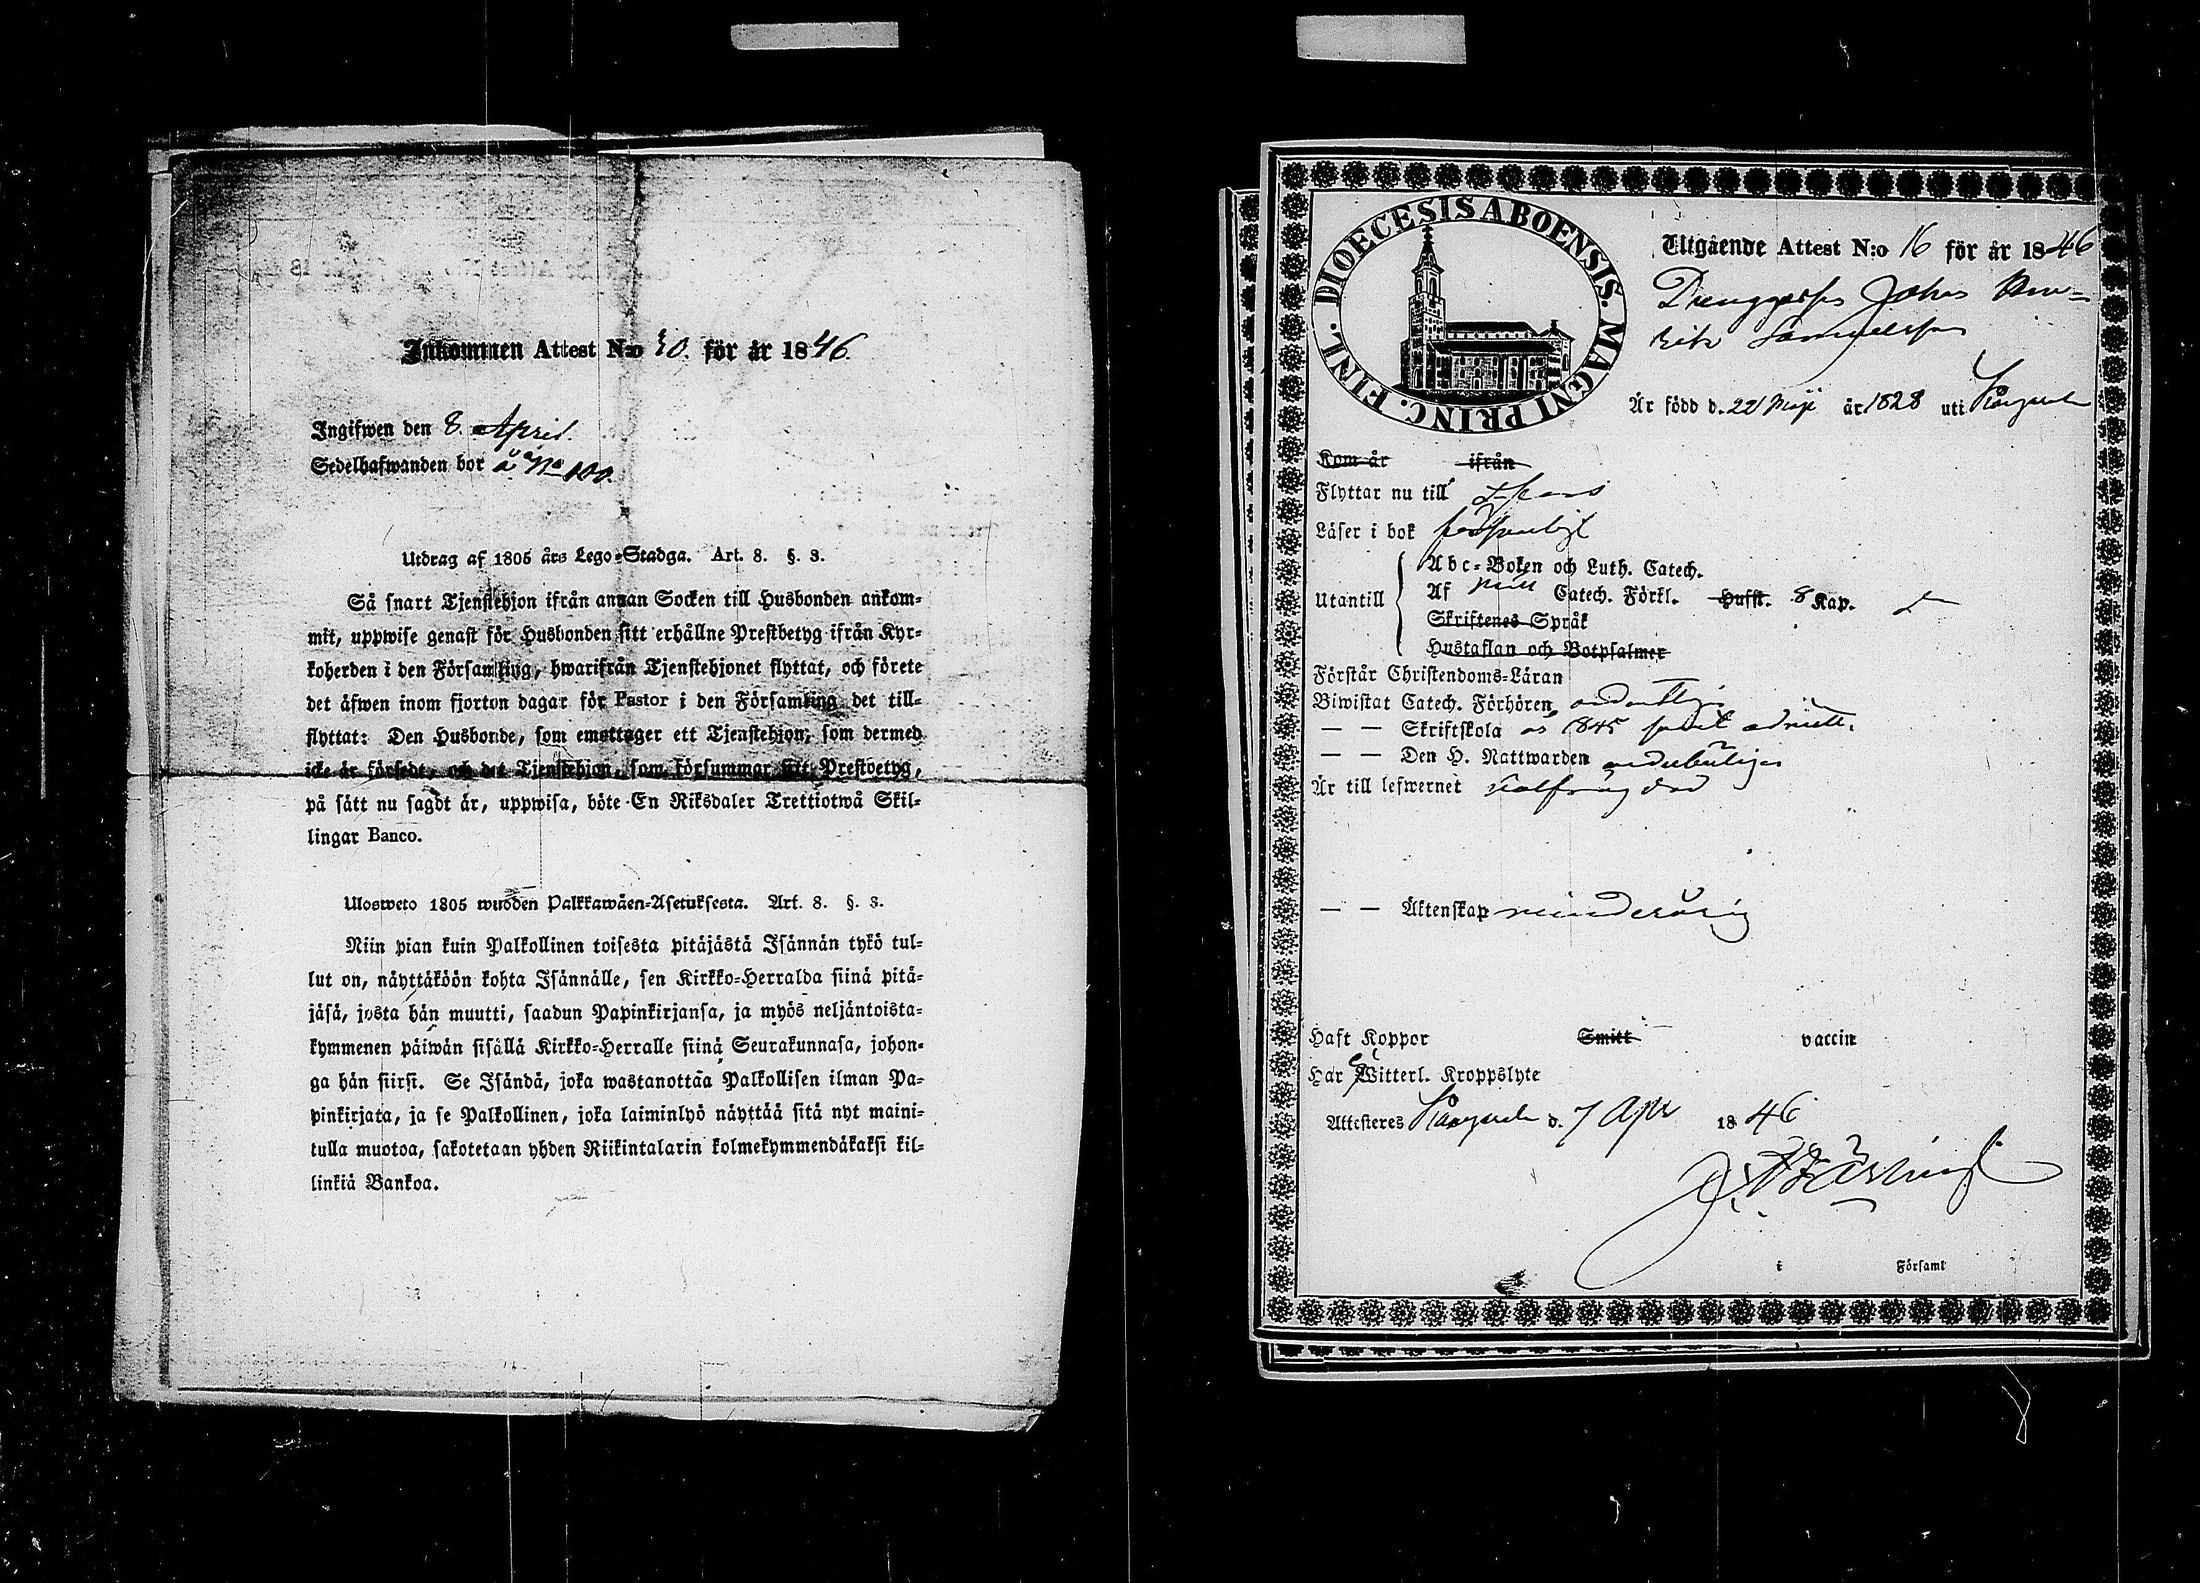 Inkommen Attest N:o 30. för år 1846
Ingifwen den 8. April.
Sedelhafwanden bor å No 100.
Utdrag af 1805 års Lego-Stadga. Art. 8. §. 3.
Så snart Tjenstehjon ifrån annan Socken till Husbonden ankom-
mit, uppwise genast för Husbonden sitt erhållne Prestbetyg ifrån Kyr-
koherden i den Församling, hwarifrån Tjenstehjonet flyttat, och förete
det äfwen inom fjorton dagar för Pastor i den Församling det till-
flyttat: Den Husbonde, som emottager ett Tjenstehjon, som dermed
icke är försedt, och det Tjenstehjon, som försummar sitt Prestbetyg,
på sätt nu sagdt är, uppwisa, böte En Riksdaler Trettiotwå Skil-
lingar Banco.
Ulosweto 1805 wuoden Palkkawäen-Asetuksesta. Art. 8. §. 3.
Niin pian kuin Palkollinen toisesta pitäjästä Isännän tykö tul-
lut on, näyttäköön kohta Isännälle, sen Kirkko-Herralda siinä pitä-
jäsä, josta hän muutti, saadun Papinkirjansa, ja myös neljäntoista-
kymmenen päiwän sisällä Kirkko-Herralle siinä Seurakunnasa, johon-
ga hän siirsi. Se Isändä, joka wastanottaa Palkollisen ilman Pa-
pinkirjata, ja se Palkollinen, joka laiminlyö näyttää sitä nyt maini-
tulla muotoa, sakotetaan yhden Riikintalarin kolmekymmendäkaksi kil-
linkiä Bankoa.
DIOECESIS ABOENSIS. MAGNI PRINC. FINL.
Utgående Attest N:o 16 för år 1846
Johan Hen=
rik Samuelsson
Är född d. 22 Maji år 1828 uti
Kom år ifrån
Flyttar nu till
Läser i bok
Abc-Boken och Luth. Catech.
Utantill Af Catech. Förkl. Hufst. 8 Kap.
Skriftenes Språk
Hustaflan och Botpsalmer
Förstår Christendoms-Läran
Biwistat Catech. Förhören ordentlig
— — Skriftskola år 1845 samt admitt.
— — Den H. Nattwarden
Är till lefwernet välfrägdad
— — Äktenskap minderårig
Haft Koppor Smitt vaccin
Har Ej Witterl. Kroppslyte
Attesteres d. 7 Apr 1846
i Församl